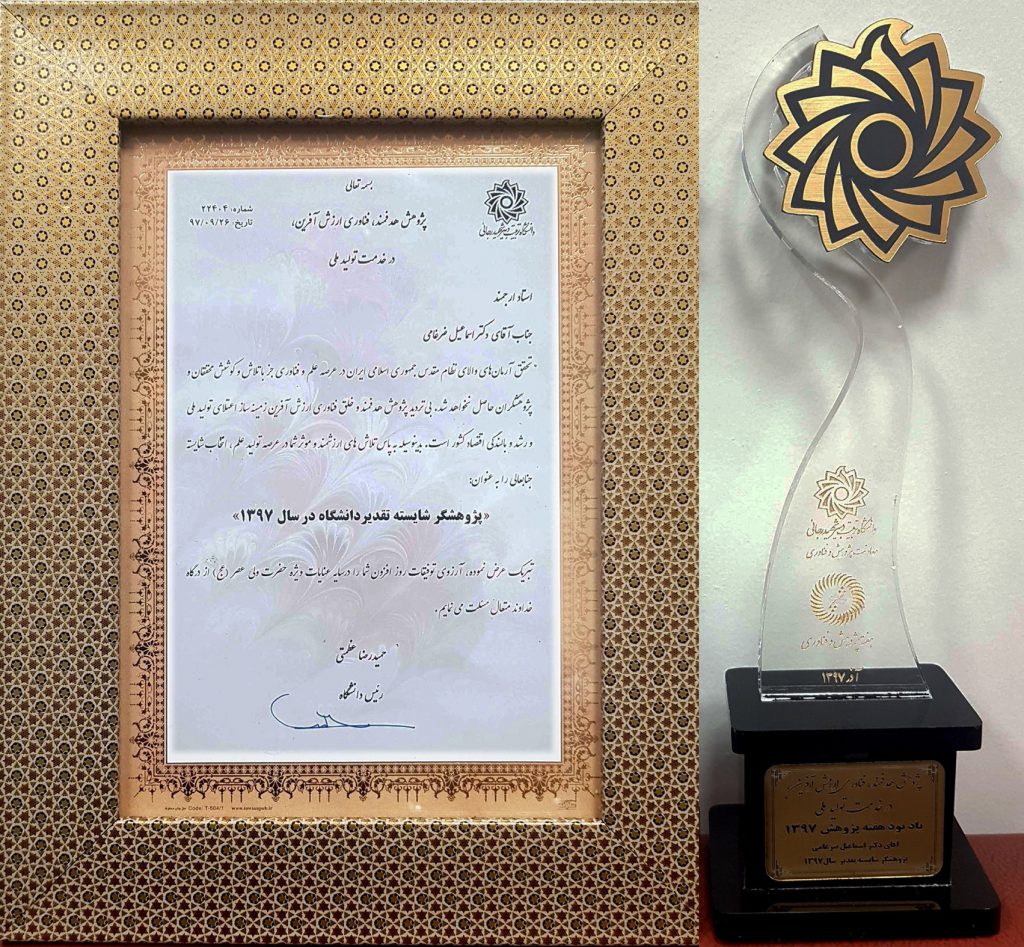 بسمه تعالی
شماره: ۲۲۴۰۴
تاریخ: ۹۷/۰۹/۲۶
دانشگاه تربیت دبیر شهید رجائی
پژوهش هدفمند، فناوری ارزش آفرین،
در خدمت تولید ملی
استاد ارجمند
جناب آقای دکتر اسماعیل ضرغامی
تحقق آرمان‌های والای نظام مقدس جمهوری اسلامی ایران در عرصه علم و فناوری جز با تلاش و کوشش محققان و
پژوهشگران حاصل نخواهد شد. بی تردید پژوهش هدفمند و خلق فناوری ارزش آفرین زمینه ساز اعتلای تولید ملی
و رشد و بالندگی اقتصاد کشور است. بدینوسیله به پاس تلاش های ارزشمند و موثر شما در عرصه تولید علم، انتخاب شایسته
جنابعالی را به عنوان:
«پژوهشگر شایسته تقدیر دانشگاه در سال ۱۳۹۷»
تبریک عرض نموده، آرزوی توفیقات روز افزون شما را در سایه عنایات ویژه حضرت ولی عصر (عج) از درگاه
خداوند متعال مسئلت می نمایم.
حمیدرضا عظمتی
رئیس دانشگاه
Code: T-504/1
دانشگاه تربیت دبیر شهید رجائی
معاونت پژوهش و فناوری
هفته پژوهش و فناوری
آذر ۱۳۹۷
پژوهش هدفمند، فناوری ارزش آفرین
در خدمت تولید ملی
یاد بود هفته پژوهش ۱۳۹۷
آقای دکتر اسماعیل ضرغامی
پژوهشگر شایسته تقدیر سال ۱۳۹۷